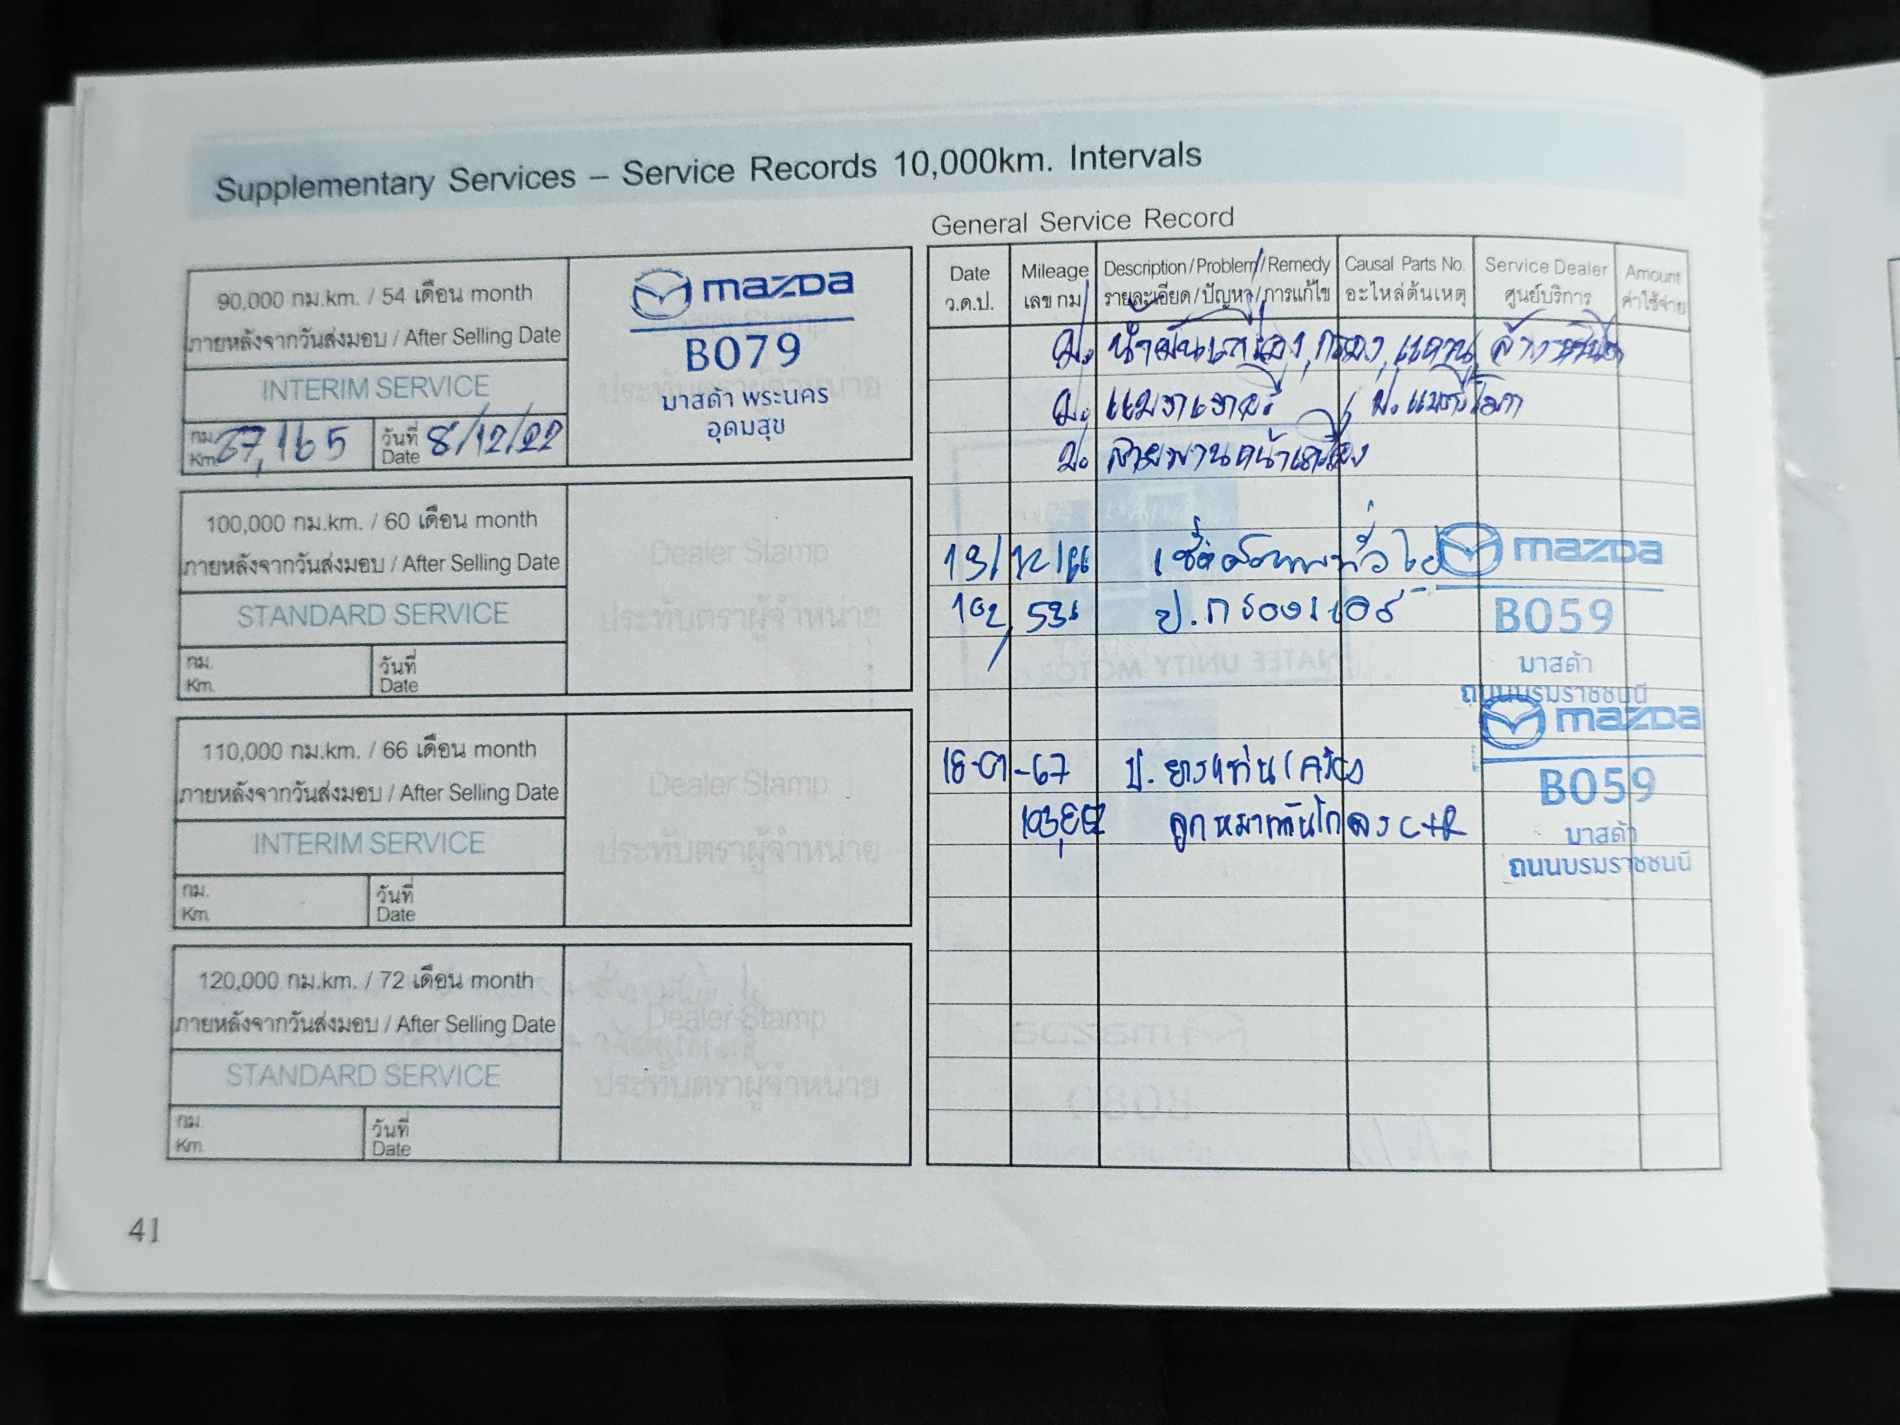 Supplementary Services – Service Records 10,000km. Intervals
90,000 กม.km. / 54 เดือน month
ภายหลังจากวันส่งมอบ / After Selling Date
INTERIM SERVICE
กม. Km. 87,165
วันที่ Date 8/12/22
mazda
B079
มาสด้า พระนคร
อุดมสุข
100,000 กม.km. / 60 เดือน month
ภายหลังจากวันส่งมอบ / After Selling Date
STANDARD SERVICE
กม. Km.
วันที่ Date
Dealer Stamp
ประทับตราผู้จำหน่าย
110,000 กม.km. / 66 เดือน month
ภายหลังจากวันส่งมอบ / After Selling Date
INTERIM SERVICE
กม. Km.
วันที่ Date
Dealer Stamp
ประทับตราผู้จำหน่าย
120,000 กม.km. / 72 เดือน month
ภายหลังจากวันส่งมอบ / After Selling Date
STANDARD SERVICE
กม. Km.
วันที่ Date
Dealer Stamp
ประทับตราผู้จำหน่าย
General Service Record
Date Mileage Description/Problem/Remedy Causal Parts No. Service Dealer Amount
ว.ด.ป. เลข กม. รายละเอียด/ปัญหา/การแก้ไข อะไหล่ต้นเหตุ ศูนย์บริการ ค่าใช้จ่าย
ป. น้ำมันเครื่อง, กรอง, แหวน, ล้าง
ป. แบตเตอรี่
ป. สายพานหน้าเครื่อง
13/12/66 เช็คสภาพทั่วไป
102,53 ป.กรองแอร์
mazda
B059
มาสด้า
ถนนบรมราชชนนี
18-01-67 ป. ยางแท่นเครื่อง
ลูกหมากกันโคลง L+R
mazda
B059
มาสด้า
ถนนบรมราชชนนี
41